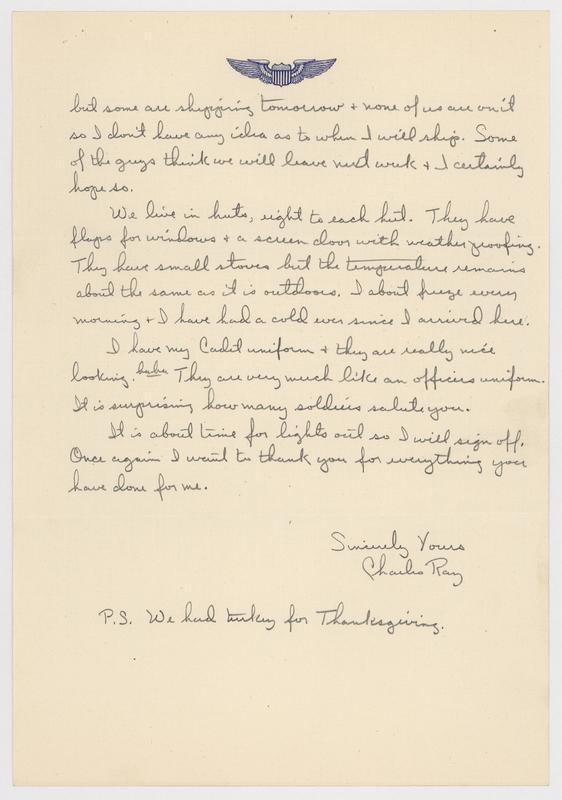 but some are shipping tomorrow + none of us are on it
so I don't have any idea as to when I will ship. Some
of the guys think we will leave next week + I certainly
hope so.
We live in huts, eight to each hut. They have
flaps for windows + a screen door with weather proofing.
They have small stoves but the temperature remains
about the same as it is outdoors. I about freeze every
morning + I have had a cold ever since I arrived here.
I have my Cadet uniform + they are really nice
looking. They are very much like an officers uniform.
It is surprising how many soldiers salute you.
It is about time for lights out so I will sign off.
Once again I want to thank you for everything you
have done for me.
Sincerely Yours
Charles Ray
P.S. We had turkey for Thanksgiving.